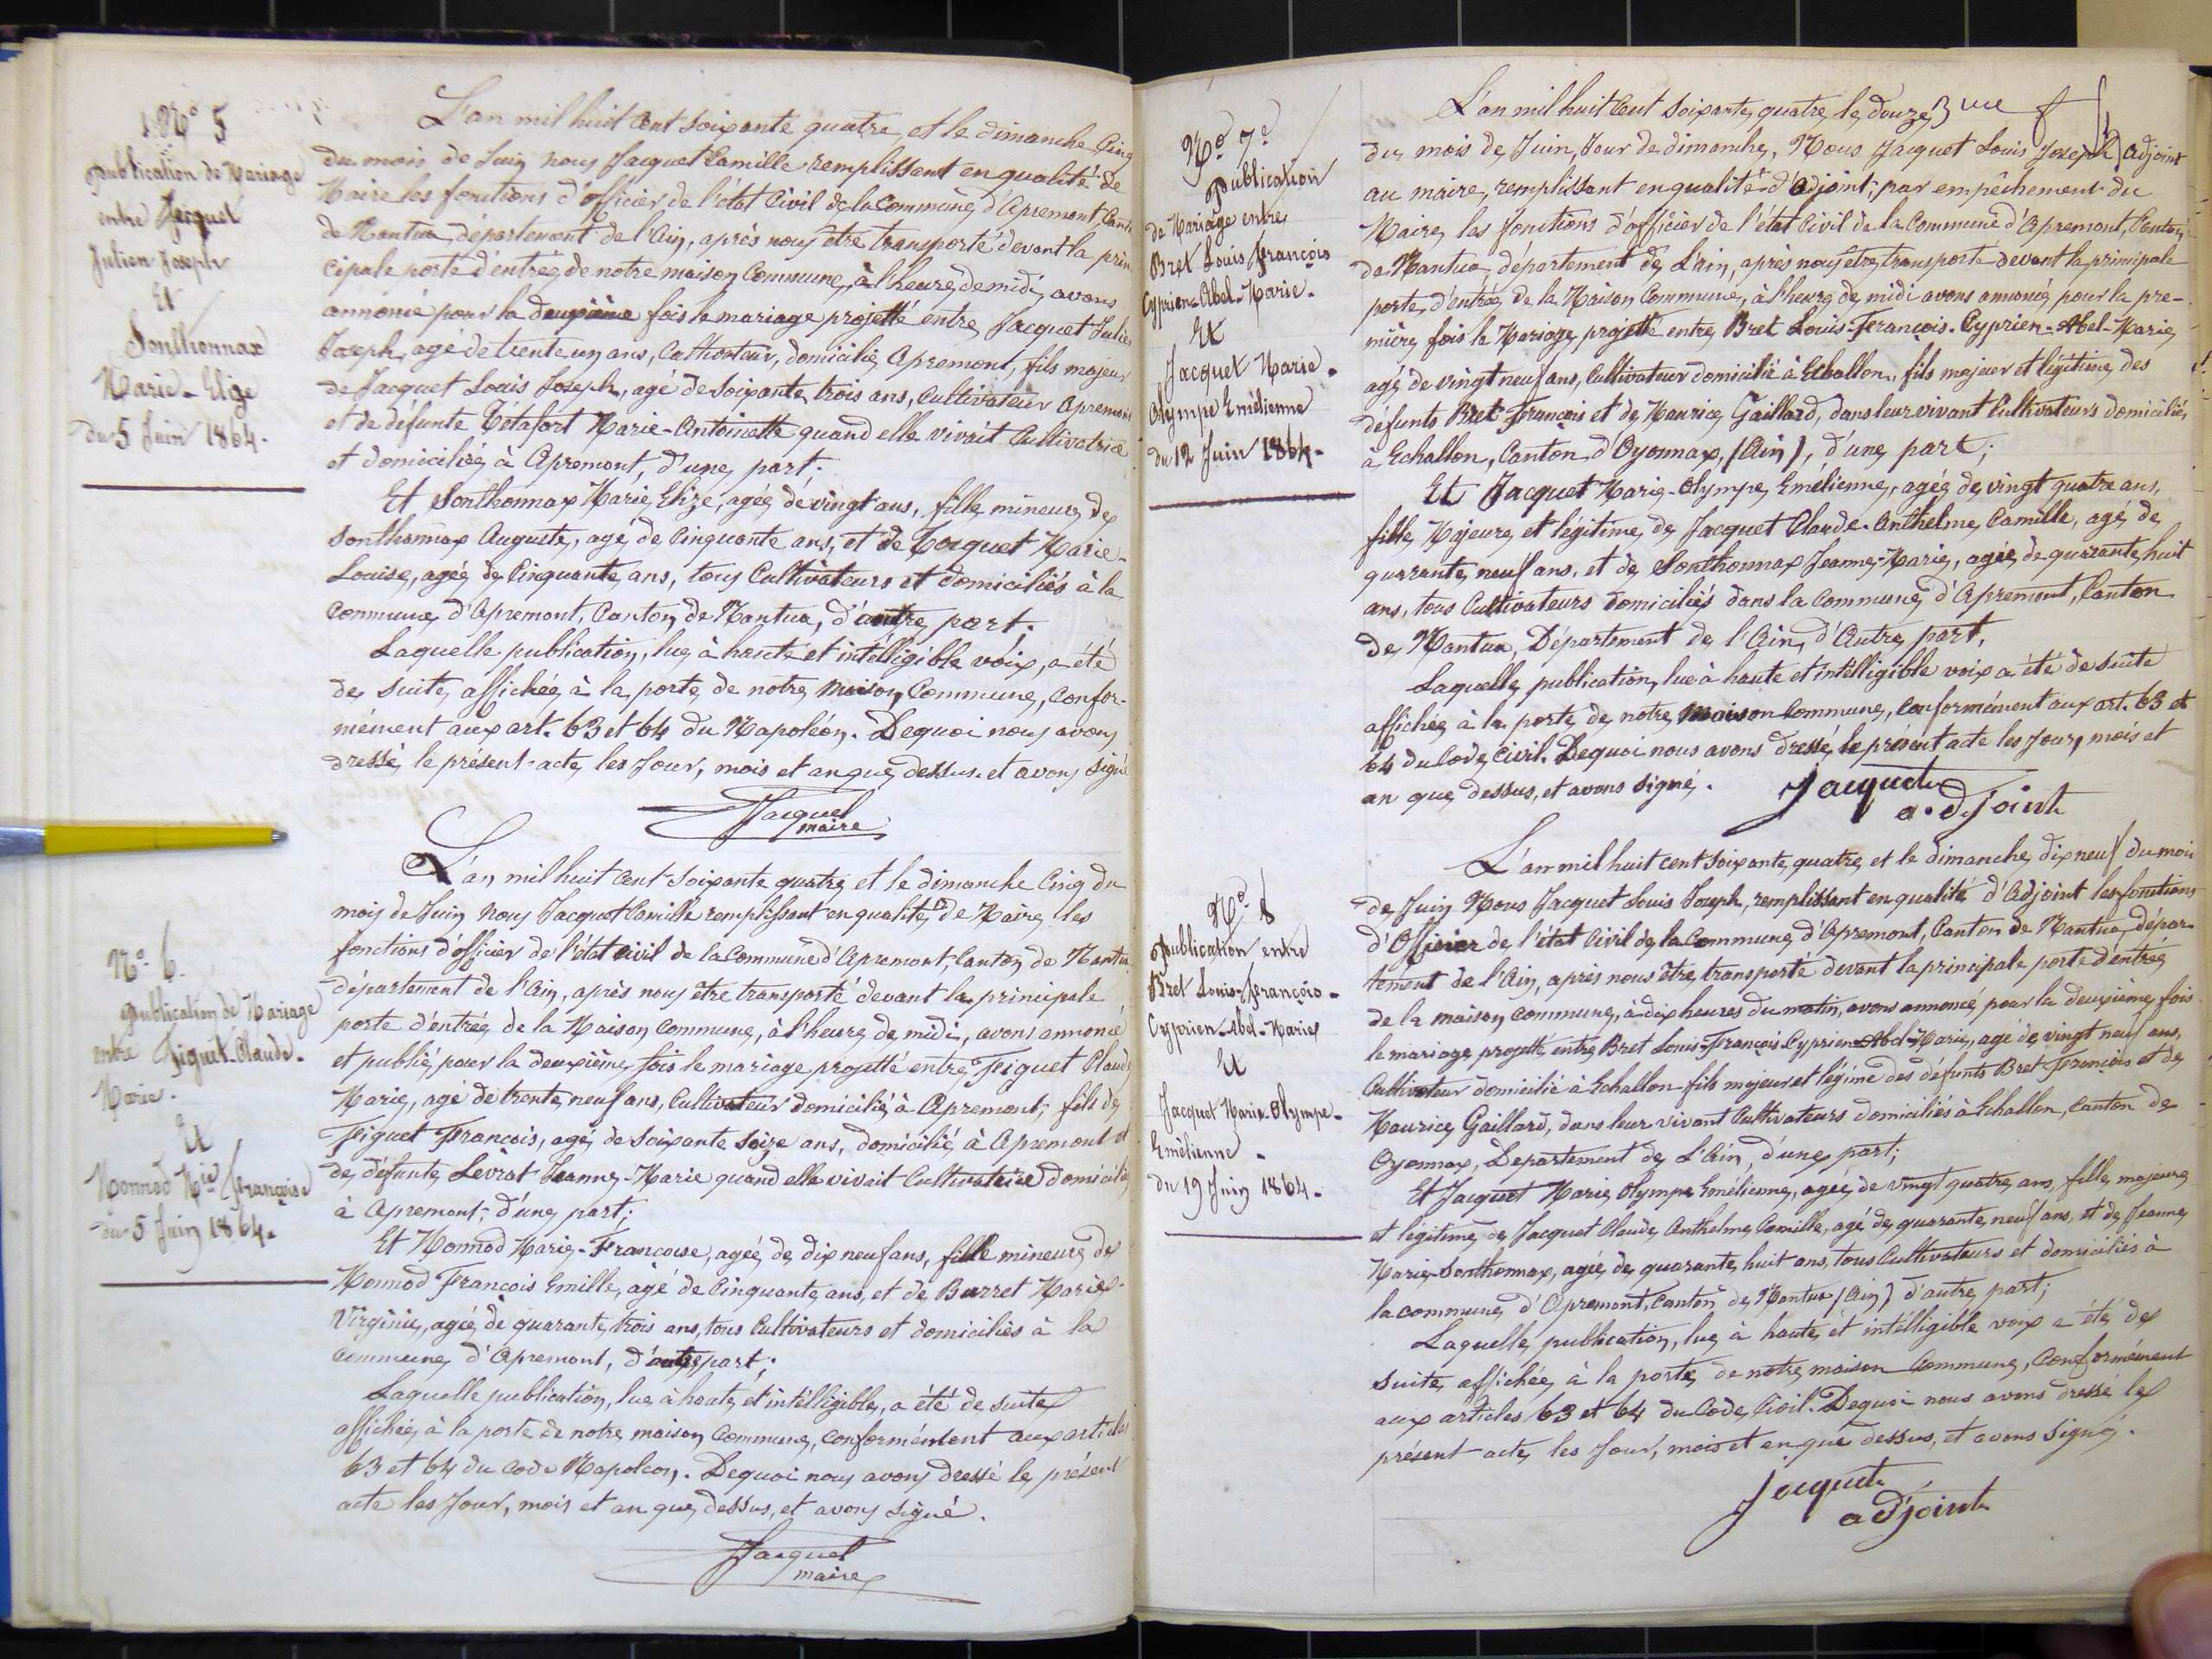 N.º 5
Publication de Mariage
entre Jacquet
Julien Joseph
Et
Sonthonnax
Marie-Elize
du 5 Juin 1864.
L'an mil huit Cent soixante quatre et le dimanche Cinq
du mois de Juin nous Jacquet Camille remplissant en qualité de
Maire les fonctions d'officier de l'état Civil de la Commune d'Apremont, Canton
de Nantua, département de l'Ain, après nous être transporté devant la prin
cipale porte d'entrée de notre maison Commune, à l'heure de midi, avons
annoncé pour la deuxième fois le mariage projetté entre Jacquet Julien
Joseph, agé de trente un ans, Cultivateur, domicilié Apremont, fils majeur
de Jacquet Louis Joseph, agé de soixante trois ans, Cultivateur Apremont
et de défunte Tétafort Marie-Antoinette quand elle vivait Cultivatrice
et domiciliée à Apremont, d'une part.
Et Sonthonnax Marie Elize, agée de vingt ans, fille mineure de
Sonthonnax Auguste, agé de Cinquante ans, et de Jacquet Marie-
Louise, agée de Cinquante ans, tous Cultivateurs et domiciliés à la
Commune d'Apremont, Canton de Nantua, d'autre part.
Laquelle publication, lue à haute et intélligible voix, a été
de suite affichée à la porte de notre maison Commune, Confor-
mément aux art. 63 et 64 du Napoléon. Dequoi nous avons
dressé le présent acte les Jour, mois et an que dessus et avons signé
Jacquet
maire
N.º 6.
Publication de Mariage
entre Figuet-Claude-
Marie.
Et
Monnod Mie Françoise
du 5 Juin 1864.
L'an mil huit Cent Soixante quatre et le dimanche Cinq du
mois de Juin nous Jacquet Camille remplissant en qualité de Maire les
fonctions d'officier de l'état Civil de la Commune d'Apremont, Canton de Nantua
département de l'Ain, après nous être transporté devant la principale
porte d'entrée de la Maison Commune, à l'heure de midi, avons annoncé
et publié pour la deuxième fois le mariage projetté entre Figuet Claude
Marie, agé de trente neuf ans, Cultivateur domicilié à Apremont; fils de
Figuet François, agé de Soixante Seize ans, domicilié à Apremont et
de défunte Levrat Jeanne-Marie quand elle vivait Cultivatrice domiciliée
à Apremont, d'une part;
Et Monnod Marie-Francoise, agée de dix neuf ans, fille mineure de
Monnod François Emille, agé de Cinquante ans, et de Burret Marie-
Virginie, agée de quarante trois ans, tous Cultivateurs et domiciliés à la
Commune d'Apremont, d'autre part;
Laquelle publication, lue à haute et intélligible, a été de suite
affichée à la porte de notre maison Commune, Conformément aux articles
63 et 64 du Code Napoléon. Dequoi nous avons dressé le présent
acte les Jour, mois et an que dessus, et avons signé.
Jacquet
maire
N.º 7.e
Publication
de Mariage entre
Bret Louis François
Cyprien-Abel-Marie.
Et
Jacquet Marie-
Olympe Emélienne
du 12 Juin 1864.
L'an mil huit Cent Soixante quatre le douze
du mois de Juin, Jour de dimanche, Nous Jacquet Louis Joseph, adjoint
au maire, remplissant en qualité d'adjoint, par empêchement du
Maire, les fonctions d'officier de l'état Civil de la Commune d'Apremont, Canton
de Nantua, département de L'ain, après nous être transporté devant la principale
porte d'entrée de la Maison Commune, à l'heure de midi avons annoncé pour la pre-
mière fois le Mariage projetté entre Bret Louis-François-Cyprien-Abel-Marie,
agé de vingt neuf ans, Cultivateur domicilié à Echallon, fils majeur et légitime des
défunts Bret François et de Maurice Gaillard, dans leur vivant Cultivateurs domiciliés
à Echallon, Canton d'Oyonnax, (Ain), d'une part;
Et Jacquet Marie-Olympe Emélienne, agée de vingt quatre ans,
fille Majeure et légitime de Jacquet Claude-Anthelme Camille, agé de
quarante neuf ans, et de Sonthonnax Jeanne-Marie, agée de quarante huit
ans, tous Cultivateurs domiciliés dans la Commune d'Apremont, Canton
de Nantua, Département de l'Ain, d'Autre part.
Laquelle publication, lue à haute et intélligible voix a été de suite
affichée à la porte de notre Maison Commune, Conformément aux art. 63 et
64 du Code Civil. Dequoi nous avons dressé le present acte les Jour, mois et
an que dessus, et avons signé.
Jacquet
adjoint
N.º 8
Publication entre
Bret Louis-François-
Cyprien-Abel-Marie
Et
Jacquet Marie-Olympe-
Emélienne
du 19 Juin 1864.
L'an mil huit cent soixante quatre et le dimanche dix neuf du mois
de Juin Nous Jacquet Louis Joseph, remplissant en qualité d'Adjoint les fonctions
d'Officier de l'état Civil de la Commune d'Apremont, Canton de Nantua, dépar-
tement de l'Ain, après nous être transporté devant la principale porte d'entrée
de la maison Commune, à dix heures du matin, avons annoncé pour la deuxième fois
le mariage projetté entre Bret Louis-François-Cyprien-Abel-Marie, agé de vingt neuf ans,
Cultivateur domicilié à Echallon fils majeur et légime des défunts Bret François et de
Maurice Gaillard, dans leur vivant Cultivateurs domiciliés à Echallon, Canton de
Oyonnax, Departement de L'Ain, d'une part;
Et Jacquet Marie Olympe Emélienne, agée de vingt quatre ans, fille majeure
et légitime de Jacquet Claude Anthelme Camille, agé de quarante neuf ans, et de Jeanne
Marie-Sonthonnax, agée de quarante huit ans, tous Cultivateurs et domiciliés à
la commune d'Apremont, Canton de Nantua (Ain) d'autre part;
Laquelle publication, lue à haute et intélligible voix a été de
suite affichée à la porte de notre maison Commune, Conformément
aux articles 63 et 64 du Code Civil. Dequoi nous avons dressé le
présent acte les Jour, mois et an que dessus, et avons signé.
Jacquet
adjoint